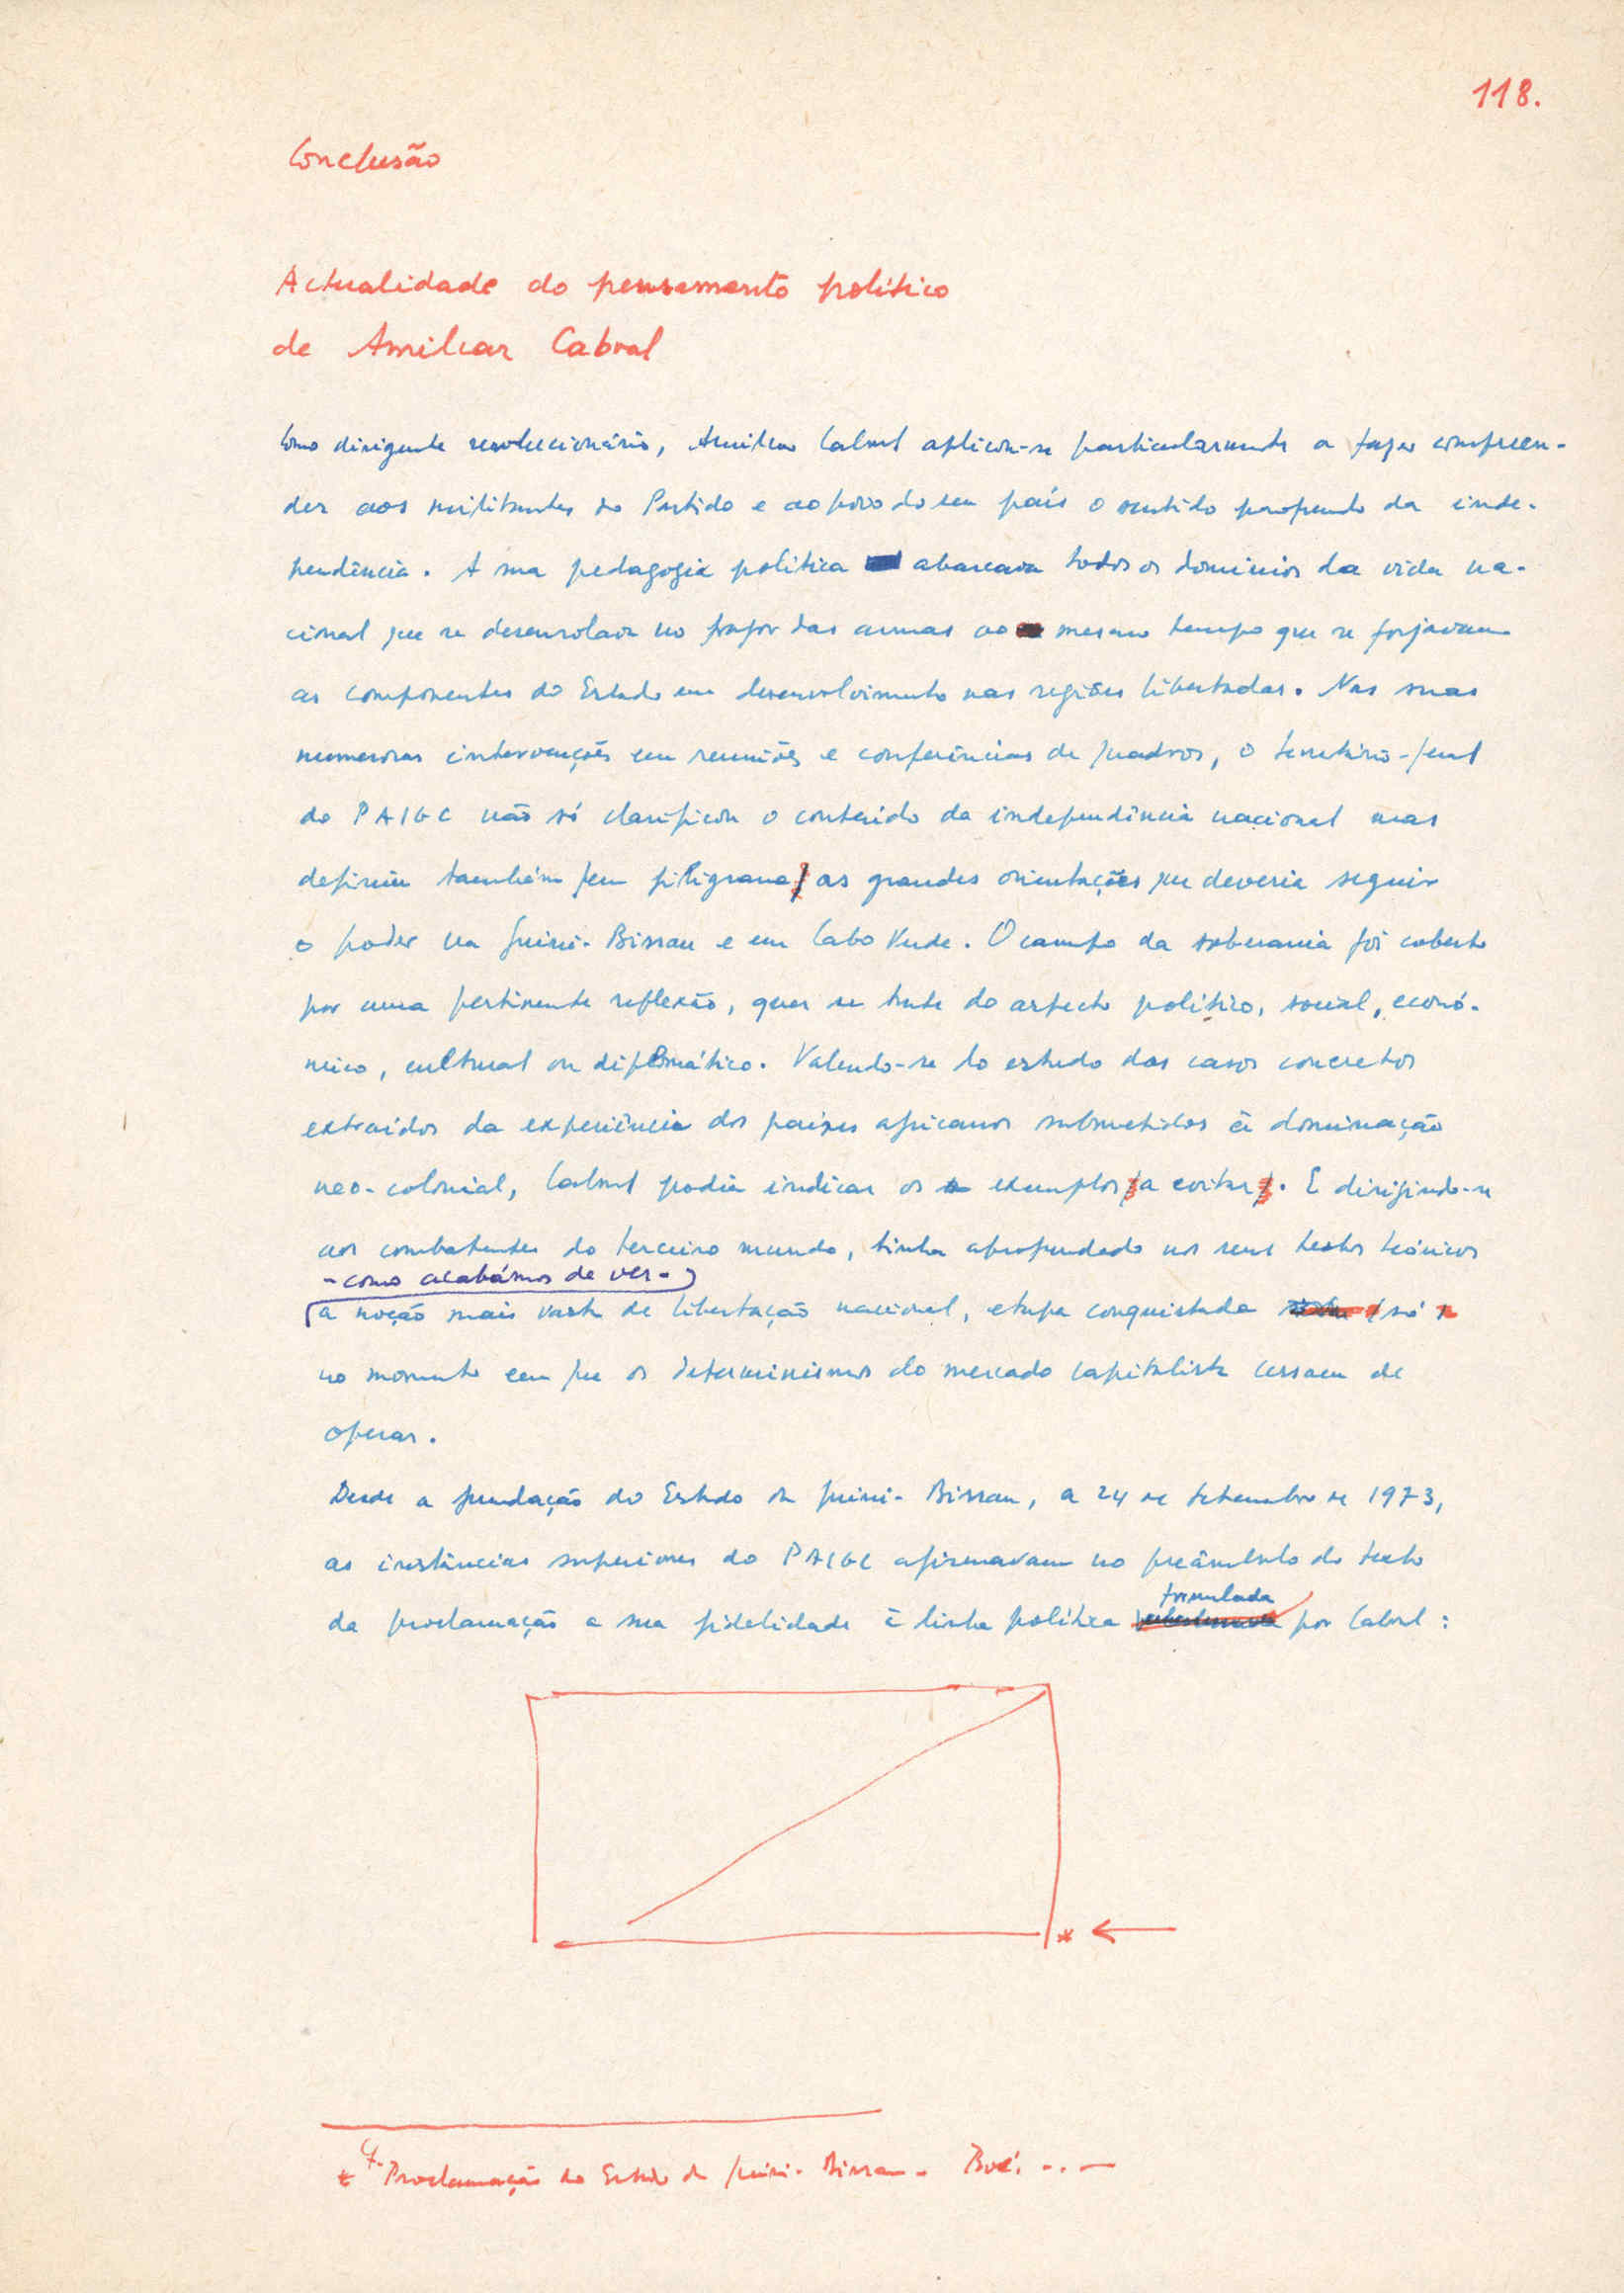 118.
Conclusão
Actualidade do pensamento político
de Amílcar Cabral
Como dirigente revolucionário, Amílcar Cabral aplicou-se particularmente a fazer compreen-
der aos militantes do Partido e ao povo do seu país o sentido profundo da inde-
pendência. A sua pedagogia política abarcava todos os domínios da vida na-
cional que se desenrolava no fragor das armas ao mesmo tempo que se forjavam
as componentes do Estado em desenvolvimento nas regiões libertadas. Nas suas
numerosas intervenções em reuniões e conferências de quadros, o secretário-geral
do PAIGC não só clarificou o conteúdo da independência nacional mas
definiu também em filigrana as grandes orientações que deveria seguir
o poder na Guiné-Bissau e em Cabo Verde. O campo da soberania foi coberto
por uma pertinente reflexão, quer se trate do aspecto político, social, econó-
mico, cultural ou diplomático. Valendo-se do estudo dos casos concretos
extraídos da experiência dos países africanos submetidos à dominação
neo-colonial, Cabral podia indicar os exemplos a evitar. E dirigindo-se
aos combatentes do terceiro mundo, tinha aprofundado nos seus textos teóricos
- como acabámos de ver -
a noção mais vasta de libertação nacional, etapa conquistada só
no momento em que os determinismos do mercado capitalista cessam de
operar.
Desde a fundação do Estado da Guiné-Bissau, a 24 de Setembro de 1973,
as instâncias superiores do PAIGC afirmavam no preâmbulo do texto
formulada
da proclamação a sua fidelidade à linha política por Cabral:
*
* Cf. Proclamação do Estado da Guiné-Bissau - Boé, ...